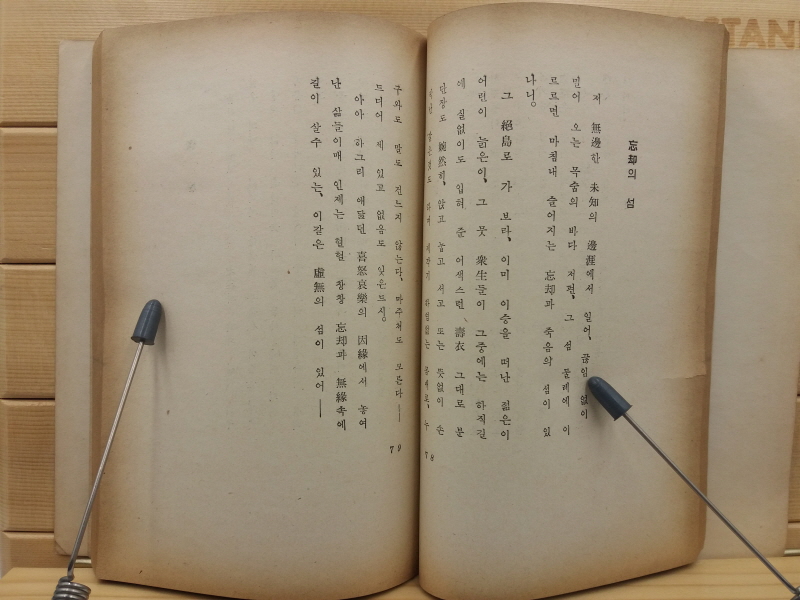 STAN
忘却의 섬
저 無邊한 未知의 邊涯에서 일어, 끊임 없이
밀어 오는 목숨의 바다 저편, 그 섬 둘레에 이
르르면 마침내 슬어지는 忘却과 죽음의 섬이 있
나니.
그 絕島로 가 보라, 이미 이승을 떠난 젊은이
어린이 늙은이, 그 뭇 衆生들이 그중에는 하직길
에 실없이도 입혀 준 어색스런 壽衣 그대로 분
단장도 婉然히, 앉고 눕고 서고 또는 뜻없이 손
누
78
구와도 말도 건느지 않는다, 마주쳐도 모른다──
드디어 제 있고 없음도 잊은드시.
아아 하그리 애닲던 喜怒哀樂의 因緣에서 놓여
난 삶들이매 인제는 헐헐 창창 忘却과 無緣속에
길이 살수 있는, 이같은 虛無의 섬이 있어──
79